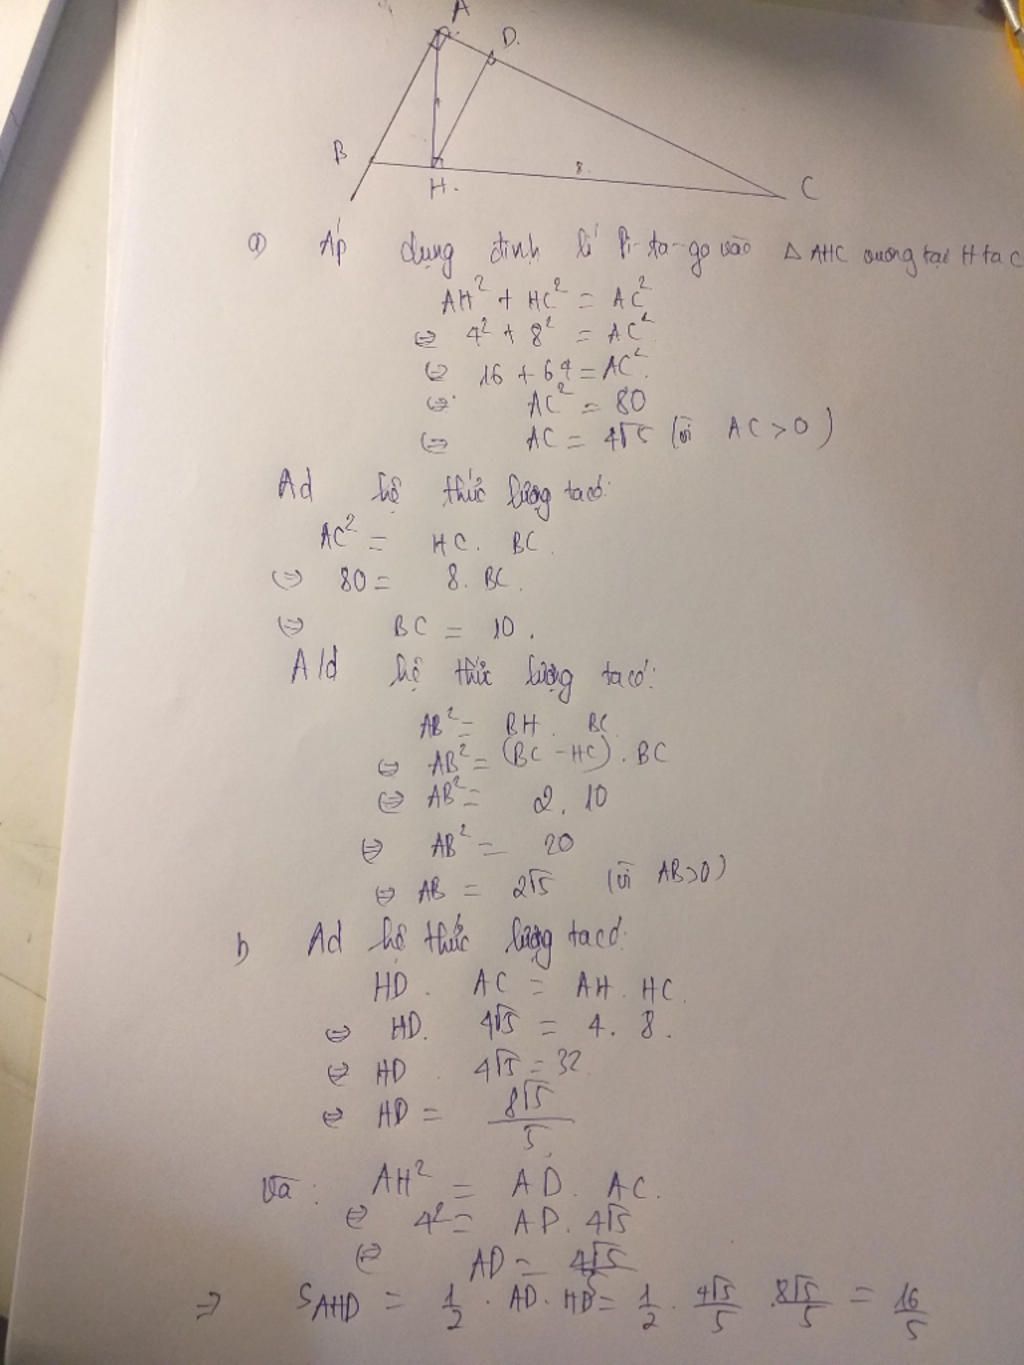 A
D.
B
H.
8.
C
a) Áp dụng định lí Pi-ta-go vào △ AHC vuông tại H ta c
AH² + HC² = AC²
⇔ 4² + 8² = AC²
⇔ 16 + 64 = AC².
⇔ AC² = 80
⇔ AC = 4√5 (vì AC > 0)
Ad hệ thức lượng ta có:
AC² = HC. BC.
⇔ 80 = 8. BC.
⇔ BC = 10.
A/d hệ thức lượng ta có:
AB² = BH. BC
⇔ AB² = (BC - HC). BC
⇔ AB² = 2. 10
⇔ AB² = 20
⇔ AB = 2√5 (vì AB>0)
b) Ad hệ thức lượng ta có:
HD. AC = AH. HC.
⇔ HD. 4√5 = 4. 8.
⇔ HD. 4√5 = 32.
⇔ HD = 8√5/5
Và: AH² = AD. AC.
⇔ 4² = AD. 4√5
⇔ AD = 4√5/5
⇒ S_AHD = 1/2 . AD. HD = 1/2 . 4√5/5 . 8√5/5 = 16/5